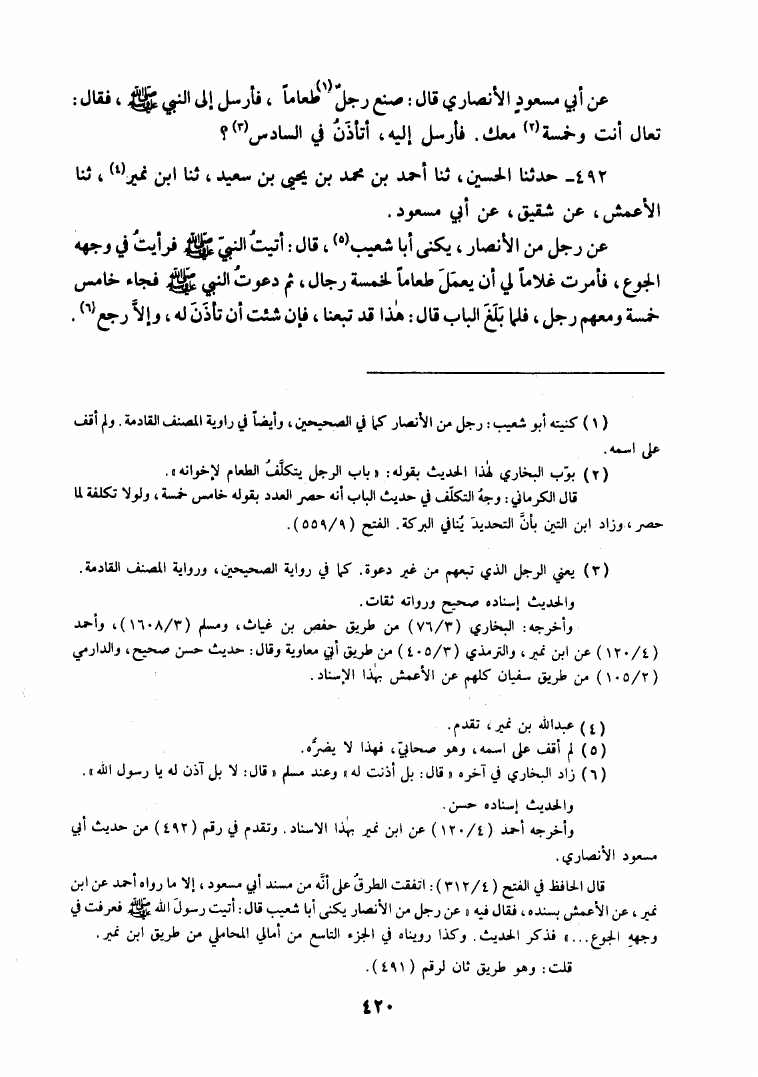 عن أبي مسعودٍ الأنصاري قال: صنع رجلٌ(١) طعاماً ، فأرسل إلى النبي ﷺ ، فقال:
تعال أنت وخمسة(٢) معك. فأرسل إليه، أتأذَنُ في السادس(٣) ؟
٤٩٢ـ حدثنا الحسين، ثنا أحمد بن محمد بن يحيى بن سعيد، ثنا ابن نمير(٤) ، ثنا
الأعمش، عن شقيق، عن أبي مسعود.
عن رجل من الأنصار، يكنى أبا شعيب(٥) ، قال: أتيتُ النبيّ ﷺ فرأيتُ في وجهه
الجوع، فأمرت غلاماً لي أن يعمَلَ طعاماً لخمسة رجال، ثم دعوتُ النبي ﷺ فجاء خامس
خمسة ومعهم رجل، فلما بَلَغَ الباب قال: هٰذا قد تبعنا، فإن شئت أن تأذَنَ له، وإلاَّ رجع(٦) .
(١) كنيته أبو شعيب: رجل من الأنصار كما في الصحيحين، وأيضاً في راوية المصنف القادمة. ولم أقف
على اسمه.
(٢) بوّب البخاري لهٰذا الحديث بقوله: «باب الرجل يتكلَّفُ الطعام لإخوانه».
قال الكرماني: وجهُ التكلّف في حديث الباب أنه حصر العدد بقوله خامس خمسة، ولولا تكلفة لما
حصر، وزاد ابن التين بأنَّ التحديدَ يُنافي البركة. الفتح (٥٥٩/٩).
(٣) يعني الرجل الذي تبعهم من غير دعوة. كما في رواية الصحيحين، ورواية المصنف القادمة.
والحديث إسناده صحيح ورواته ثقات.
وأخرجه: البخاري (٧٦/٣) من طريق حفص بن غياث، ومسلم (١٦٠٨/٣)، وأحمد
(١٢٠/٤) عن ابن نمير، والترمذي (٤٠٥/٣) من طريق أبي معاوية وقال: حديث حسن صحيح، والدارمي
(١٠٥/٢) من طريق سفيان كلهم عن الأعمش بهٰذا الإسناد.
(٤) عبدالله بن نمير، تقدم.
(٥) لم أقف على اسمه، وهو صحابيّ، فهذا لا يضرُّه.
(٦) زاد البخاري في آخره «قال: بل أذنت له» وعند مسلم «قال: لا بل آذن له يا رسول الله».
والحديث إسناده حسن.
وأخرجه أحمد (١٢٠/٤) عن ابن نمير بهٰذا الاسناد. وتقدم في رقم (٤٩٢) من حديث أبي
مسعود الأنصاري.
قال الحافظ في الفتح (٣١٢/٤): اتفقت الطرقُ على أنَّه من مسند أبي مسعود، إلا ما رواه أحمد عن ابن
نمير، عن الأعمش بسنده، فقال فيه «عن رجل من الأنصار يكنى أبا شعيب قال: أتيت رسولَ الله ﷺ فعرفت في
وجههِ الجوع...» فذكر الحديث. وكذا رويناه في الجزء التاسع من أمالي المحاملي من طريق ابن نمير.
قلت: وهو طريق ثان لرقم (٤٩١).
٤٢٠